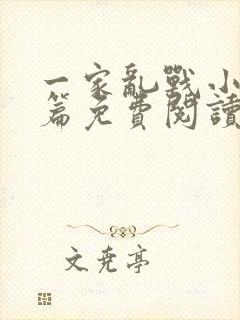 一家亂戰小
篇免費閱讀
文堯亭